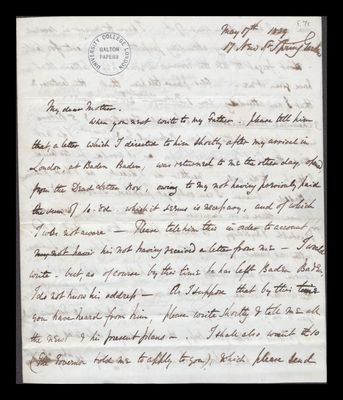 5.7r
May 17th 1839
17 New St Spring Gardens
UNIVERSITY COLLEGE LONDON
GALTON PAPERS
My dear Mother.
When you next write to my Father. Please tell him
that, a letter which I directed to him shortly after my arrival in
London, at Baden Baden, was returned to me the other day,
from the Dead Letter Box, owing to my not having previously paid
the sum of 1s. 8d. which it seems is necessary, and of which
I was not aware — Please tell him this in order to account for
his not having received a letter from me — I would
write. but, as of course by this time he has left Baden Baden,
I do not know his address — As I suppose that by this time
you have heard from him, please write shortly & tell me all
the news & his present plans — . I shall also want £10
(The Governor told me to apply to you), which please send